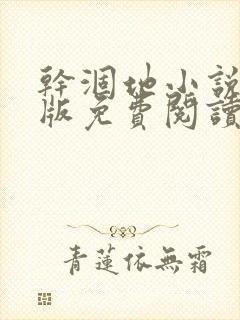 幹涸地小說
版免費閱讀
青蓮依無霜